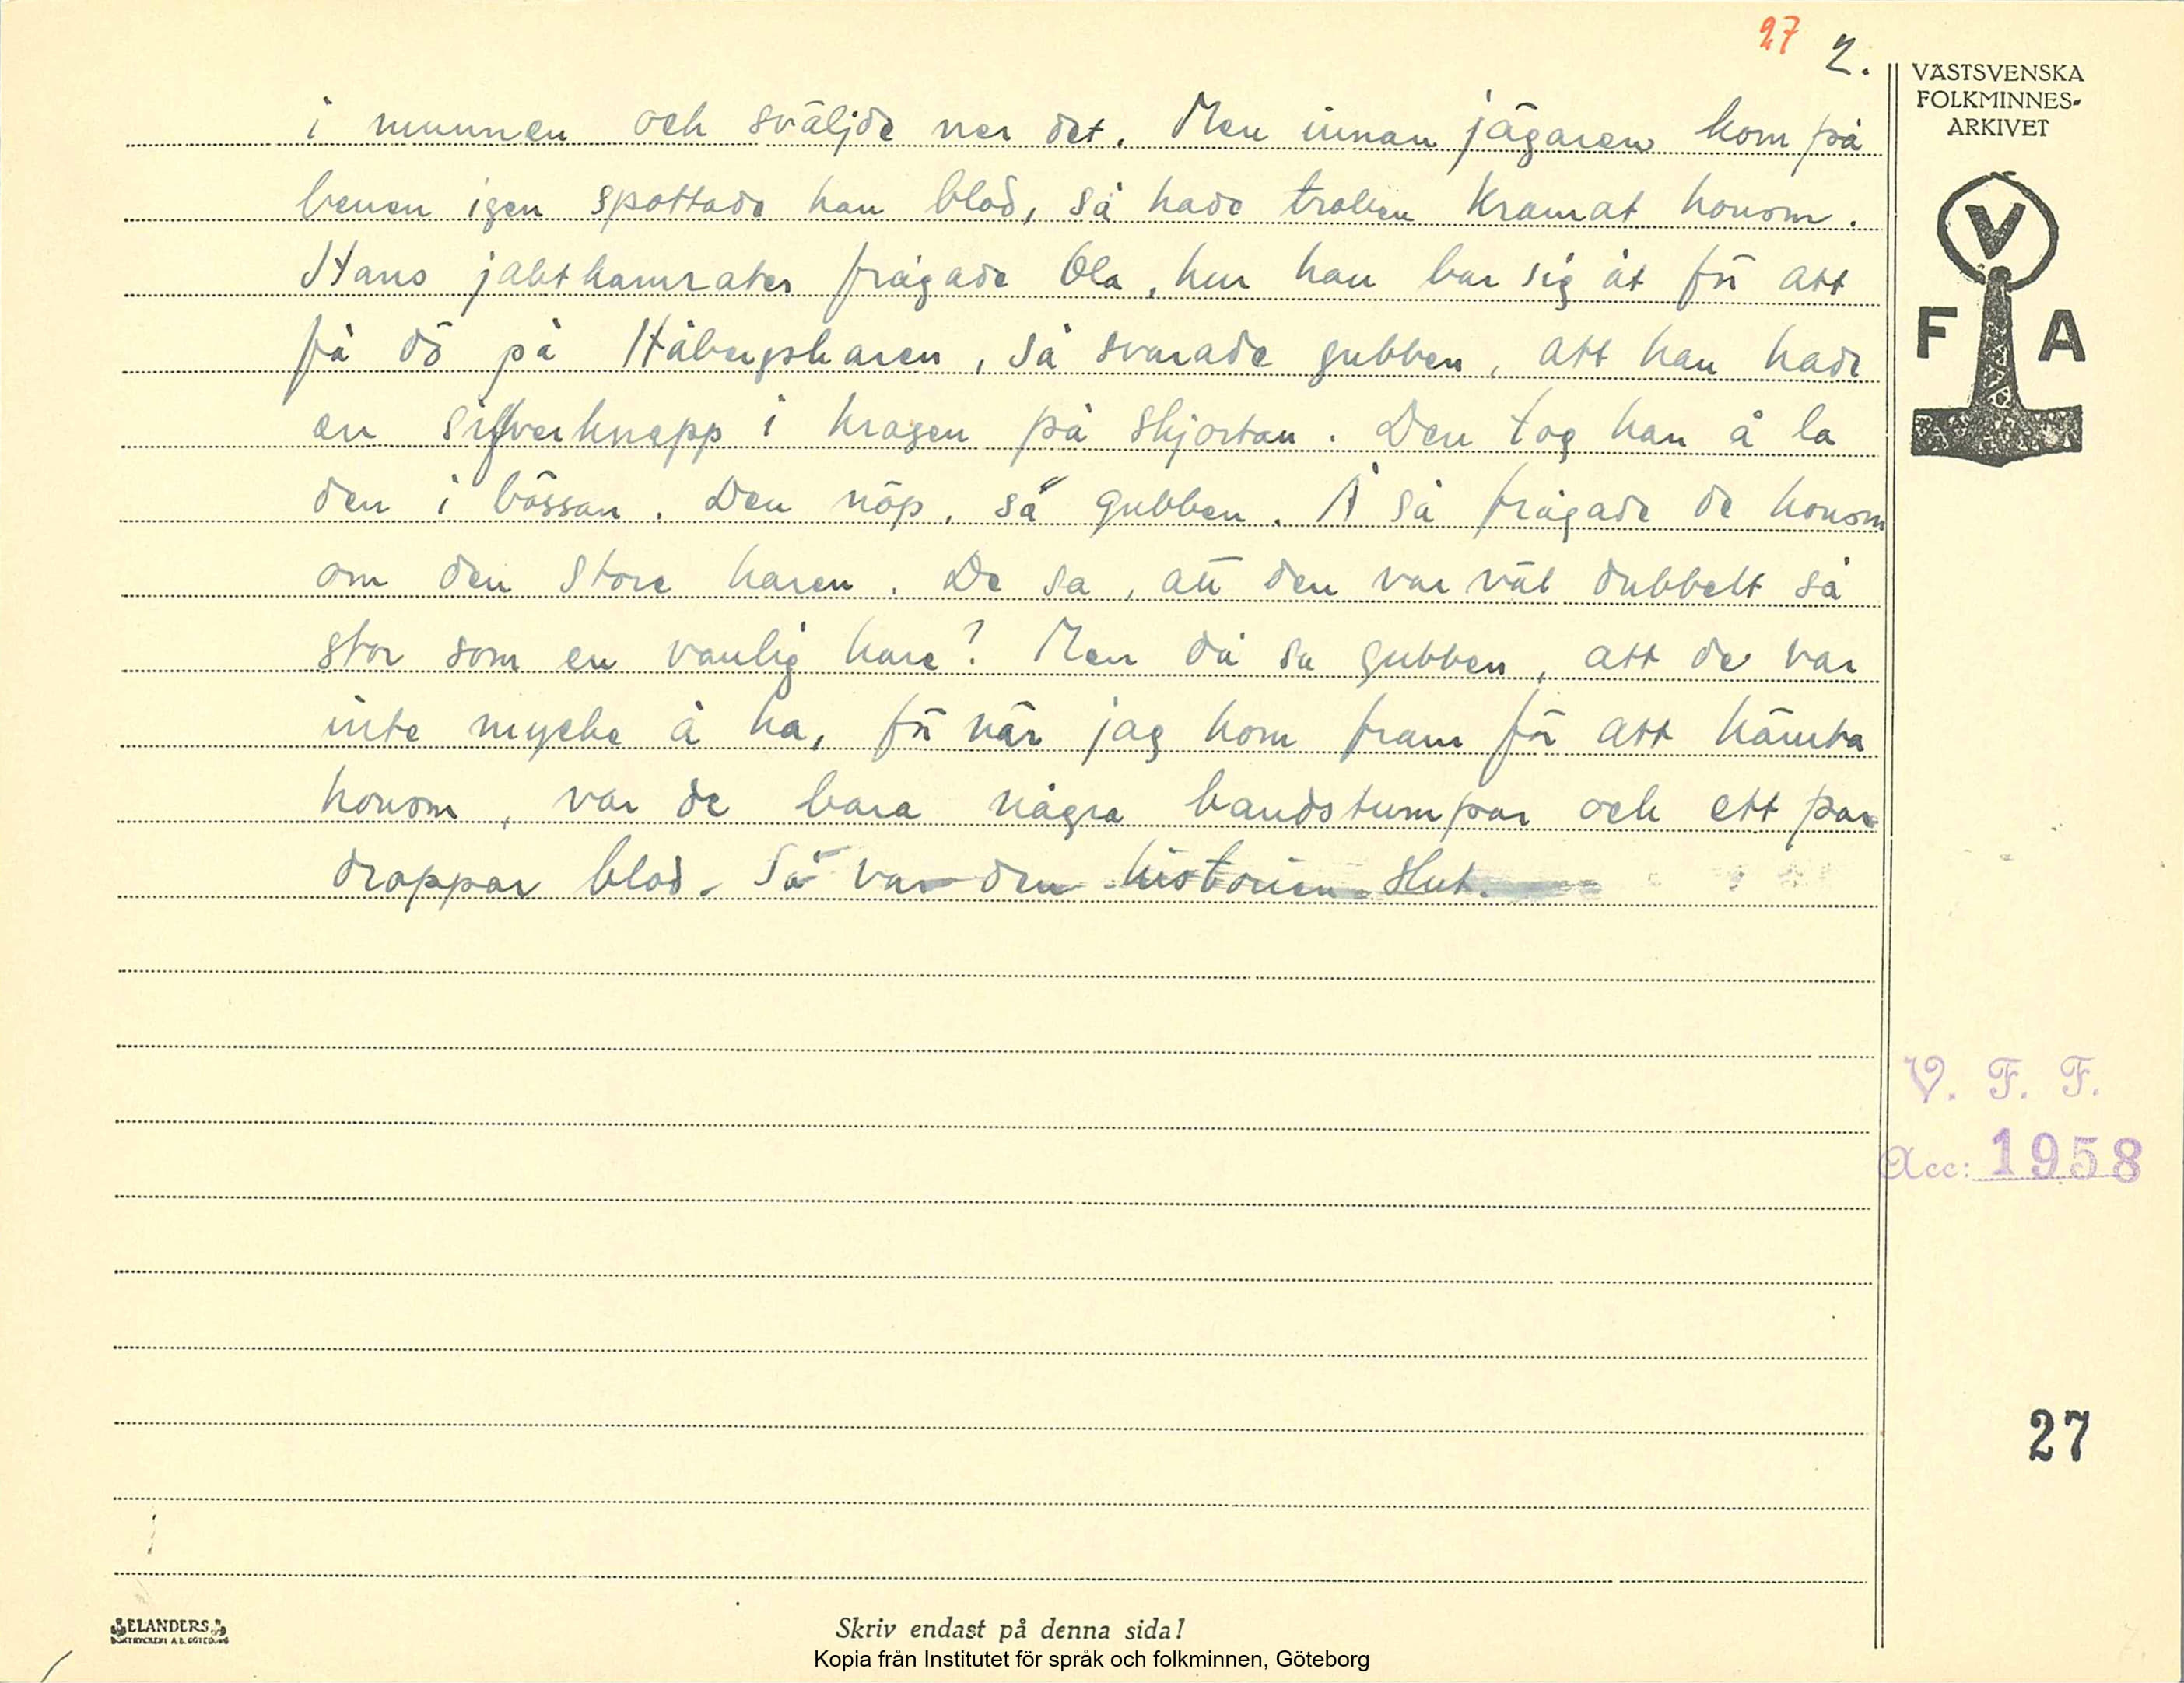 27 2.
VÄSTSVENSKA
FOLKMINNES-
ARKIVET
V
F A
i munnen och sväljde ner det. Men innan jägaren kom på
benen igen spottade han blod, så hade trollen kramat honom.
Hans jaktkamrater frågade Ola, hur han bar sig åt för att
få dö på Håbergsharen, så svarade gubben, att han hade
en silverknapp i kragen på skjortan. Den tog han å la
den i bössan. Den nöp, sa gubben. Å så frågade de honom
om den store haren. De sa, att den var väl dubbelt så
stor som en vanlig hare? Men då sa gubben, att de var
inte mycke å ha, för när jag kom fram för att hämta
honom, var de bara några bandstumpar och ett par
droppar blod. Så var den historien slut.
V. F. F.
Acc: 1958
27
ELANDERS
BOKTRYCKERI A.B. GÖTEBORG
Skriv endast på denna sida!
Kopia från Institutet för språk och folkminnen, Göteborg